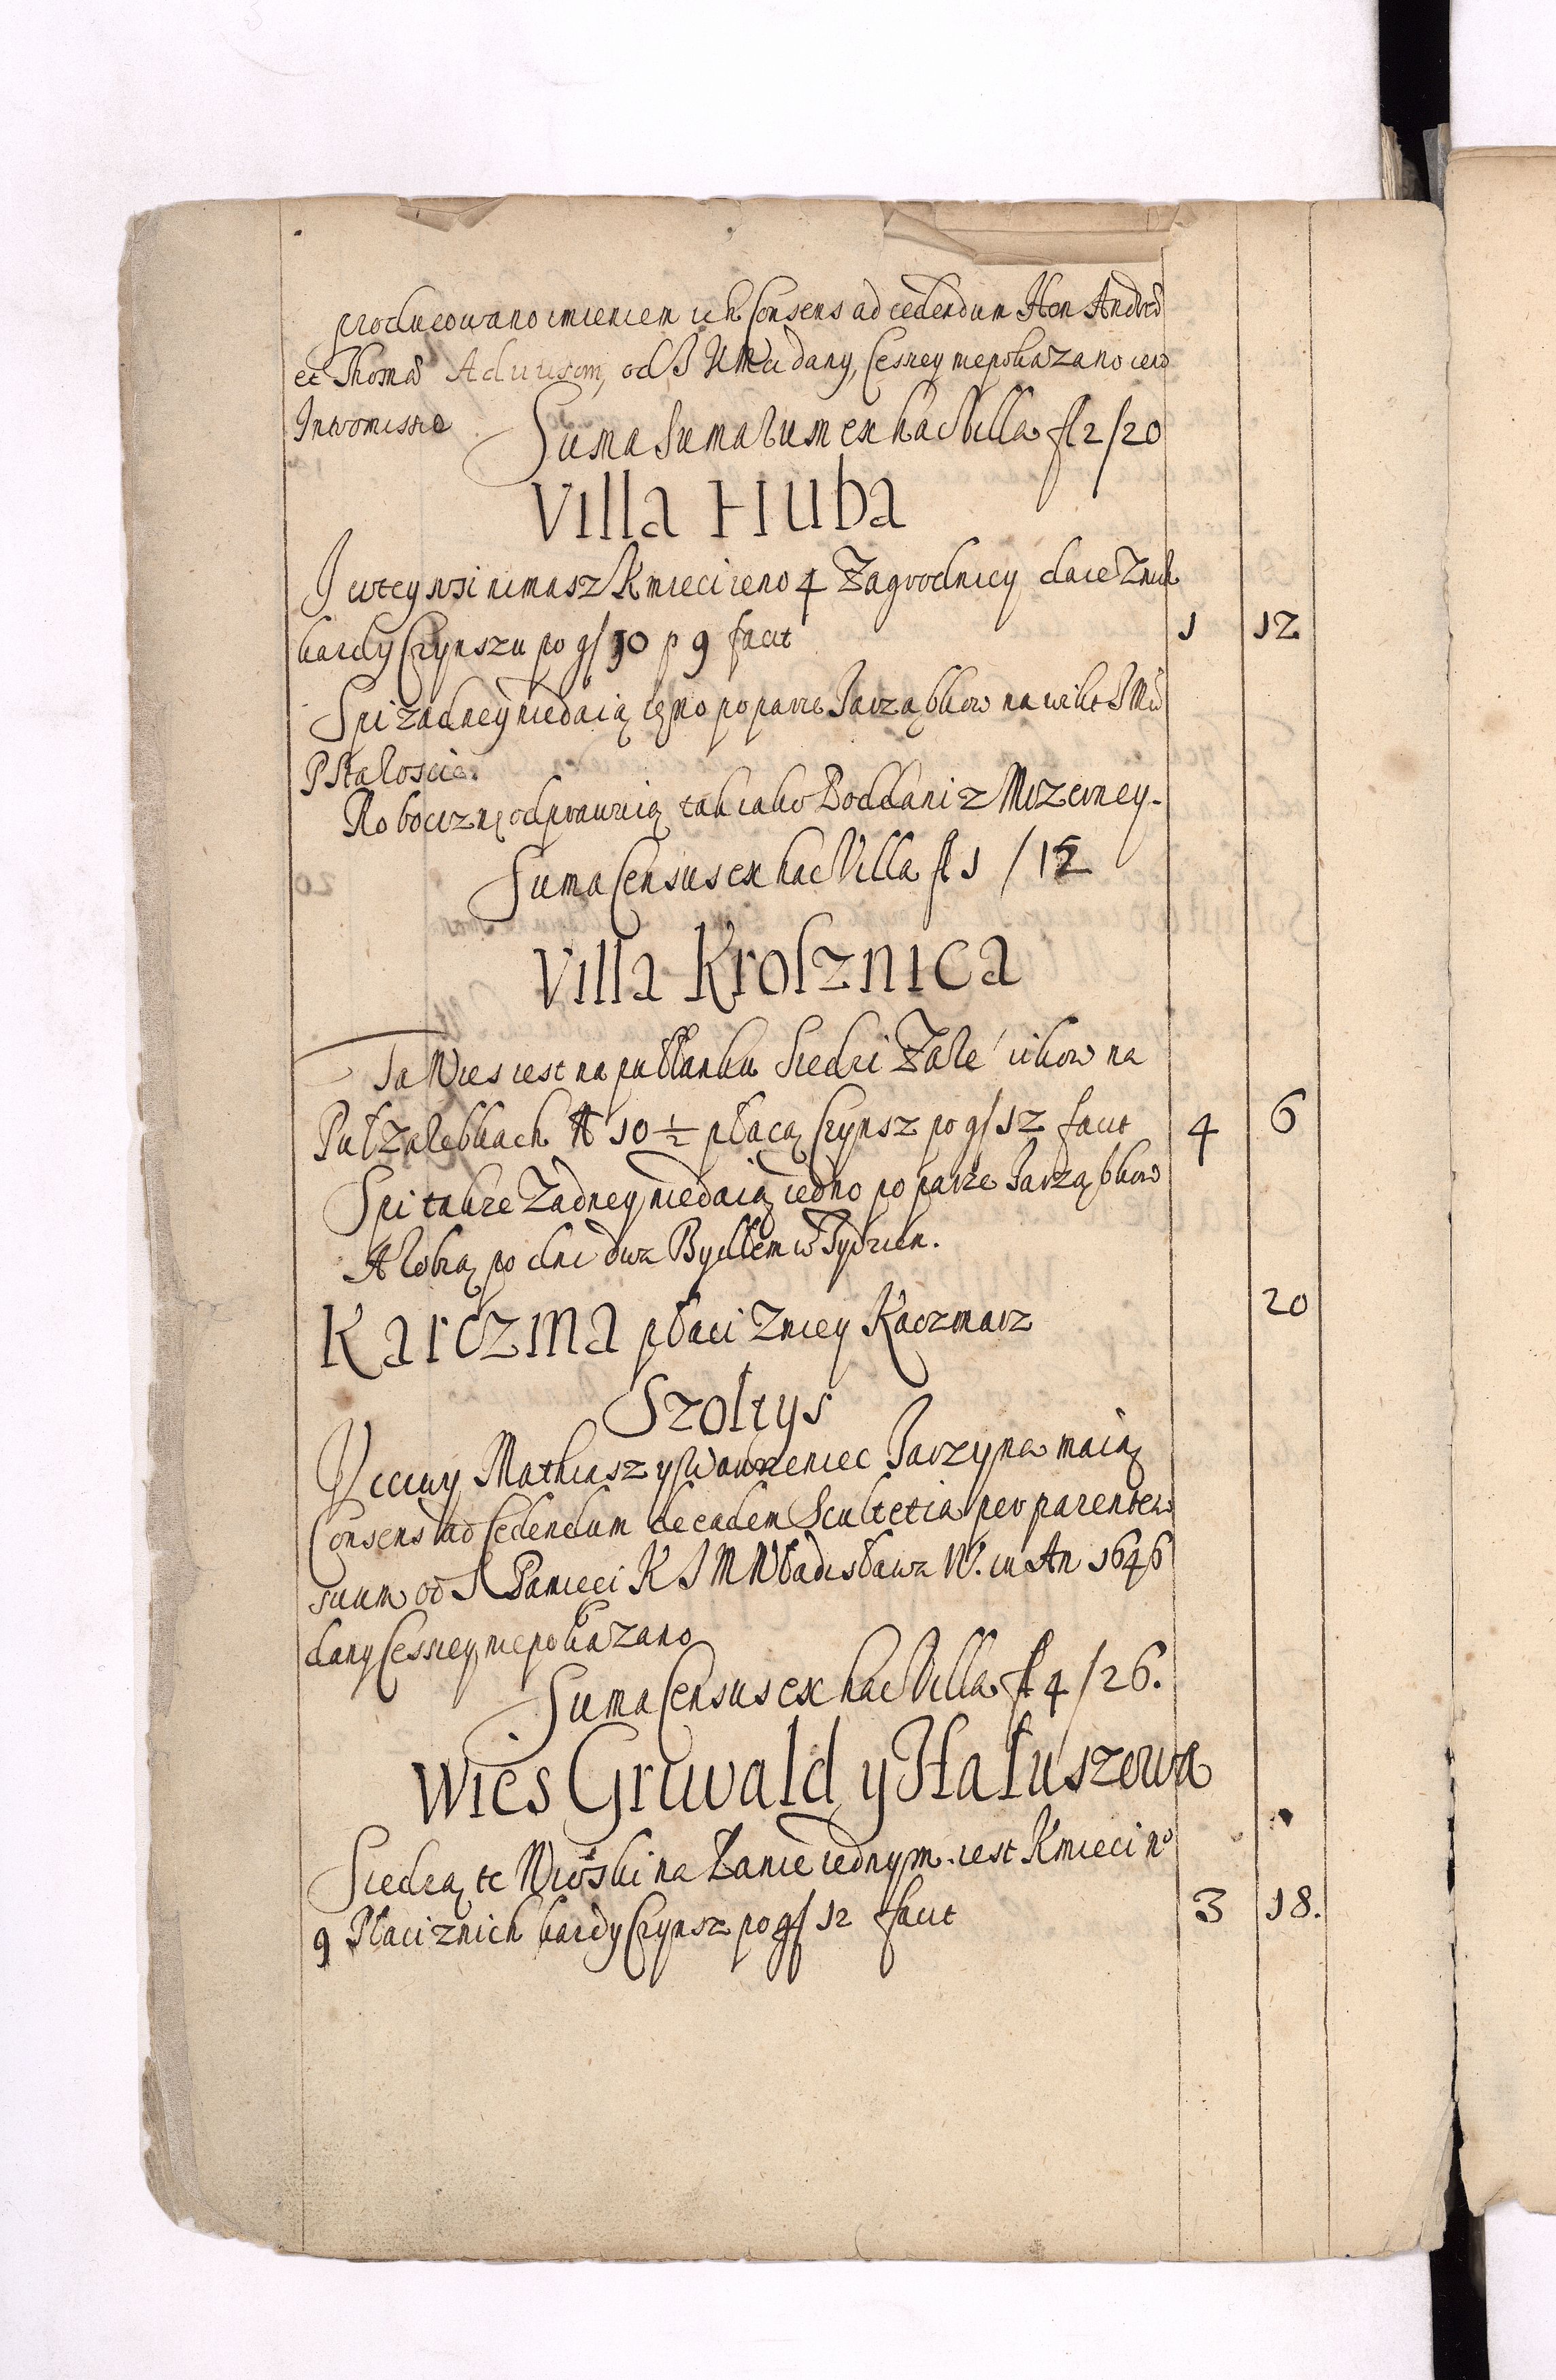 producowano imieniem ich Consens ad cedendum Hon Andreæ
et Thomæ od J K Mci dany, Cessiey niepokazano iero
Intromissio
Suma Sumarum ex hac Villa fl 2/20
Villa Huba
J wtey wsi nimasz Kmieci ieno 4 Zagrodnicy daie Znich
kazdy Czynszu po g/ 10 p 9 facit 1 12
Spi zadney niedaią ieno po parze Jarząbkow na wikt JMci
PStaroscie.
Robociznę odprawuią tak iako Poddani z Mizerney.
Suma Census ex hac Villa fl 1 /12
Villa Krosznica
Ta Wies iest na pułłanku Siedzi Zarę ikow na
Pułzarębkach 10 ½ płacą Czynsz po g/ 12 facit 4 6
Spi takze Zadney niedaią iedno po parze Jarząbkow
A robią po dni dwa Bydłem w Tydzien.
Karczma płaci Zniey Kaczmarz 20
Szołtys
Vcciwy Mathiasz y Wawrzeniec Jarzyna maią
Consens ad Cedendum de eadem Scultetia per parentem
suum od S Pamięci K J M Władisława IV. in An 1646
dany Cessiey niepokazano
Suma Census ex hac Villa fl 4/26.
Wies Griwald y Hałuszowa
Siedzą te Wioski na Łanie iednym iest Kmieci no
9 Płaci znich kazdy Czynsz po g/ 12 facit 3 18.